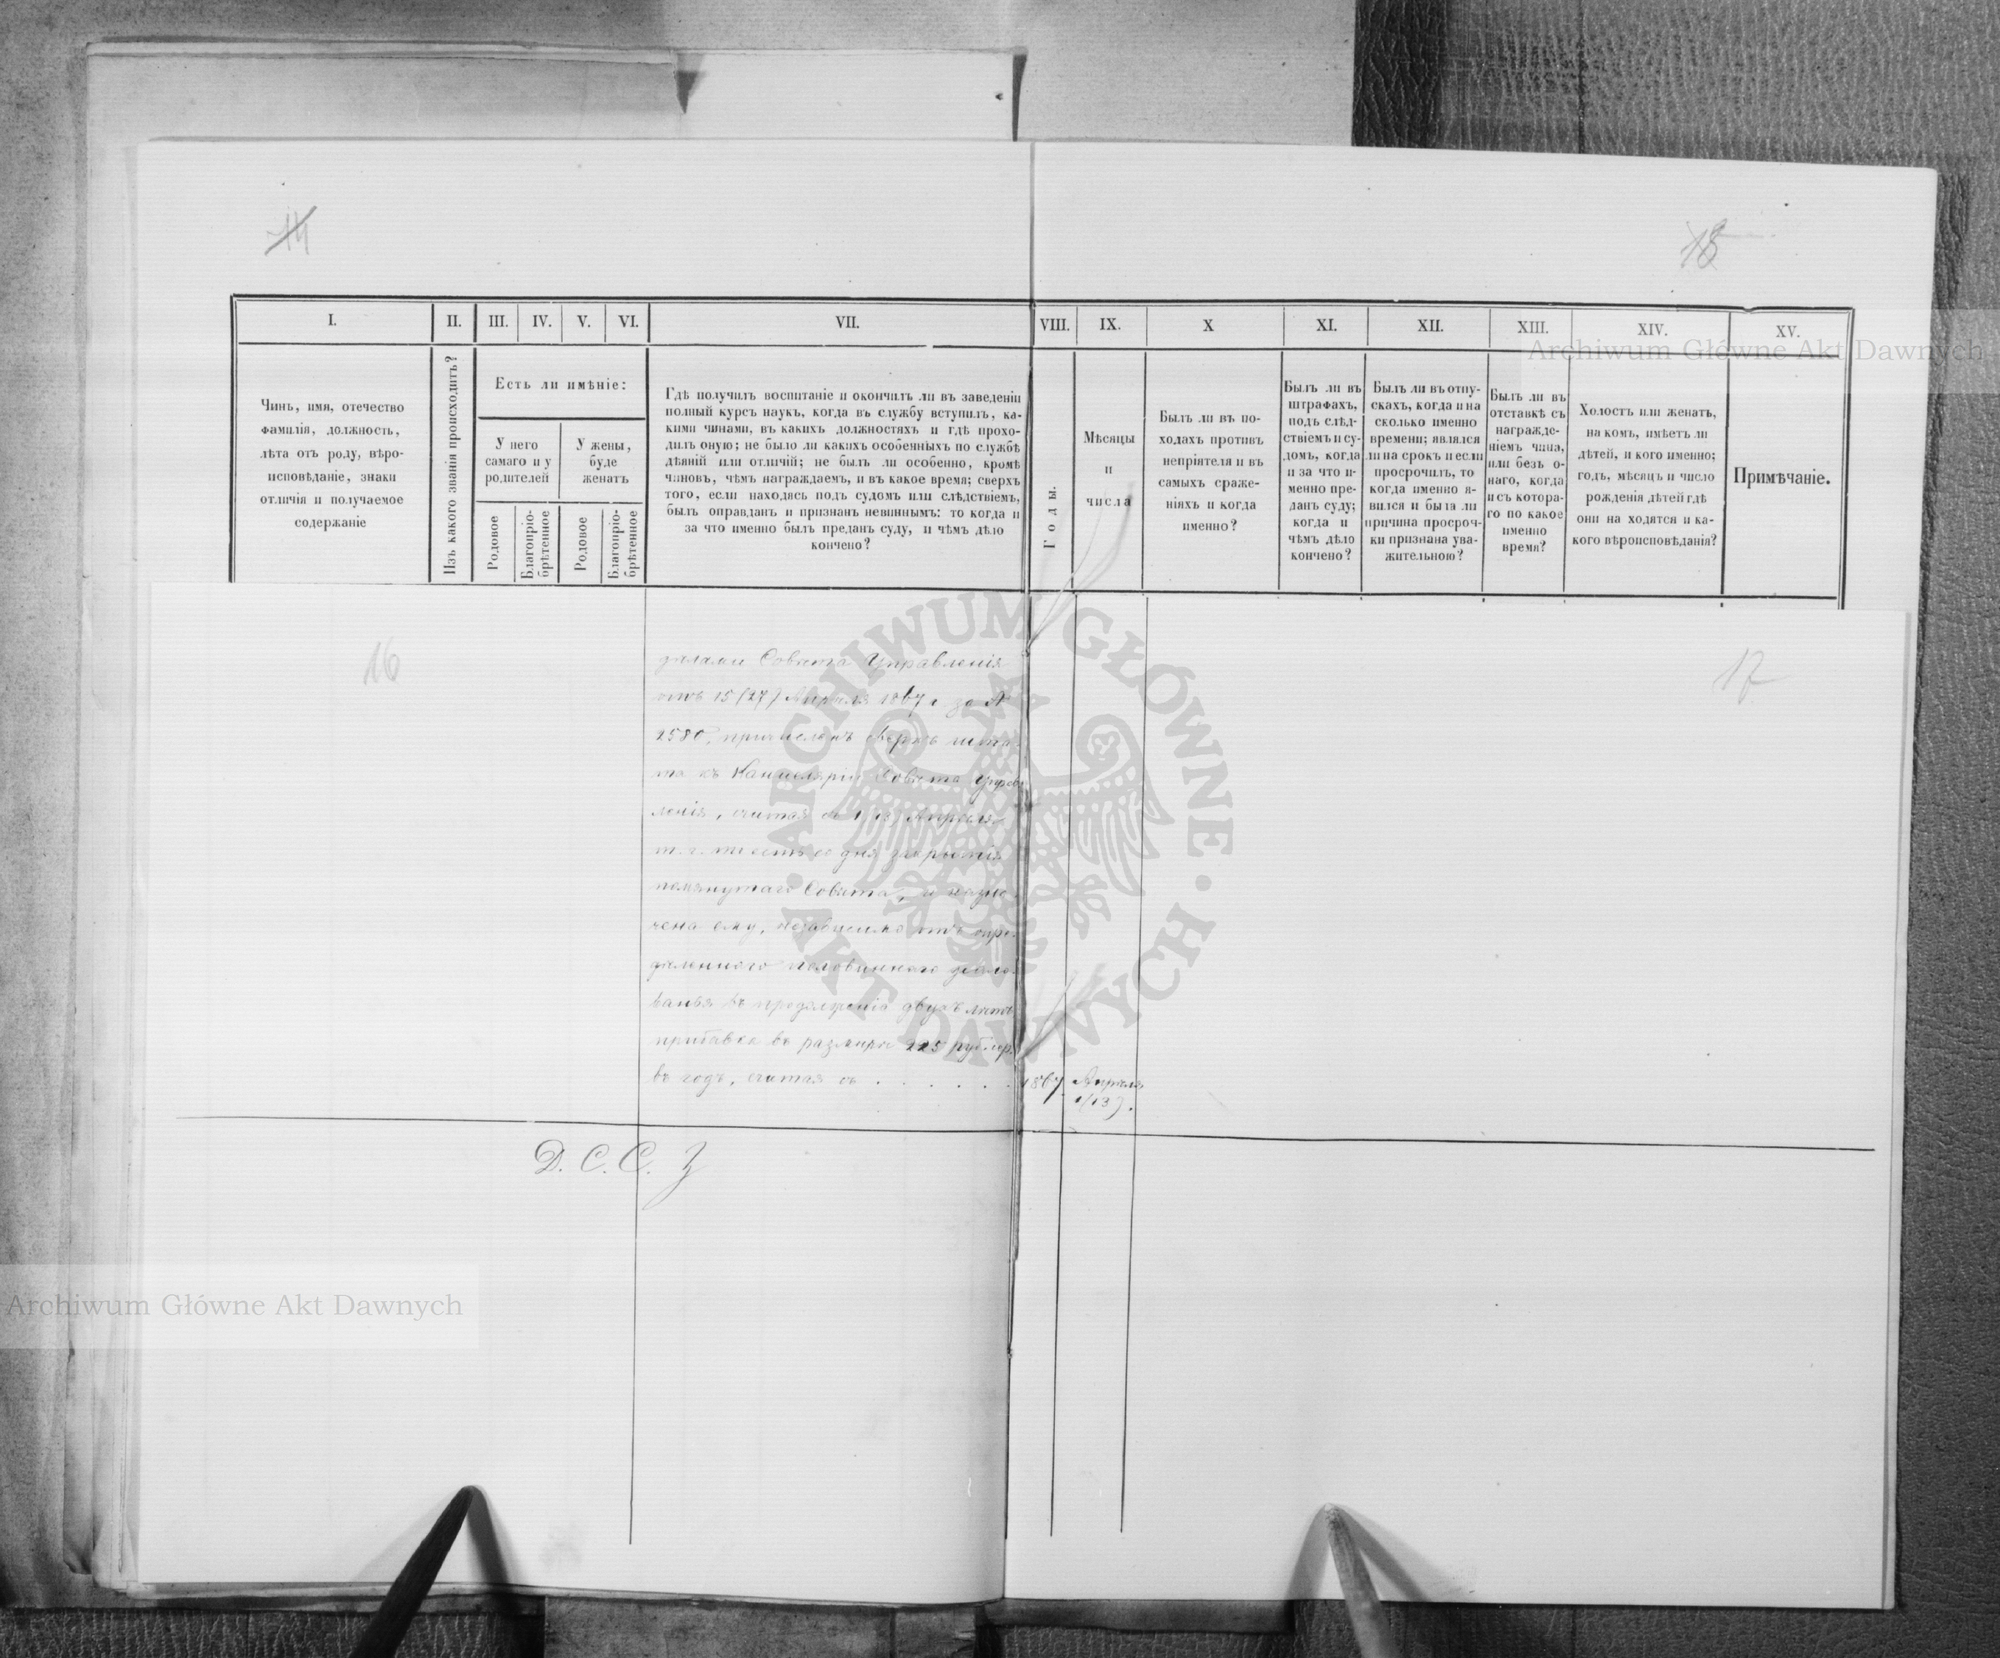 14
18
I.
II.
III.
IV.
V.
VI.
VII.
VIII.
IX.
X
XI.
XII.
XIII.
XIV.
XV.
Чинъ, имя, отечество
фамилія, должность,
лѣта отъ роду, вѣро-
исповѣданіе, знаки
отличія и получаемое
содержаніе
Изъ какого званія происходитъ?
Есть ли имѣніе:
У него
самаго и у
родителей
У жены,
буде
женатъ
Родовое
Благопріо-
брѣтенное
Родовое
Благопріо-
брѣтенное
Гдѣ получилъ воспитаніе и окончилъ ли въ заведеніи
полный курсъ наукъ, когда въ службу вступилъ, ка-
кими чинами, въ какихъ должностяхъ и гдѣ прохо-
дилъ оную; не было ли какихъ особенныхъ по службѣ
дѣяній или отличій; не былъ ли особенно, кромѣ
чиновъ, чѣмъ награждаемъ, и въ какое время; сверхъ
того, если находясь подъ судомъ или слѣдствіемъ,
былъ оправданъ и признанъ невиннымъ: то когда и
за что именно былъ преданъ суду, и чѣмъ дѣло
кончено?
Годы.
Мѣсяцы
и
числа
Былъ ли въ по-
ходахъ противъ
непріятеля и въ
самыхъ сраже-
ніяхъ и когда
именно?
Былъ ли въ
штрафахъ,
подъ слѣд-
ствіемъ и су-
домъ, когда
и за что и-
менно пре-
данъ суду;
когда и
чѣмъ дѣло
кончено?
Былъ ли въ отпу-
скахъ, когда и на
сколько именно
времени; являлся
ли на срокъ и если
просрочилъ, то
когда именно я-
вился и была ли
причина просроч-
ки признана ува-
жительною?
Былъ ли въ
отставкѣ съ
награжде-
ніемъ чина,
или безъ о-
наго, когда
и съ котора-
го по какое
именно
время?
Холостъ или женатъ,
на комъ, имѣетъ ли
дѣтей, и кого именно;
годъ, мѣсяцъ и число
рожденія дѣтей гдѣ
они на ходятся и ка-
кого вѣроисповѣданія?
Примѣчаніе.
16
17
дѣлами Совѣта Управленія
отъ 15 (27) Апрѣля 1867 г за №
2580, причисленъ сверхъ шта-
та къ Канцеляріи Совѣта Управ
ленія, считая съ 1 (13) Апрѣля
т. г. то есть со дня закрытія
помянутаго Совѣта, и назна-
чена ему, независимо отъ опре-
дѣленнаго половиннаго жало-
ванья въ продолженіи двухъ лѣтъ
прибавка въ размѣрѣ 225 рублей
въ годъ, считая съ . . . . . . 1867 Апрѣля
1/(13).
Д. С. С. З
Archiwum Główne Akt Dawnych
Archiwum Główne Akt Dawnych
ARCHIWUM GŁÓWNE AKT DAWNYCH